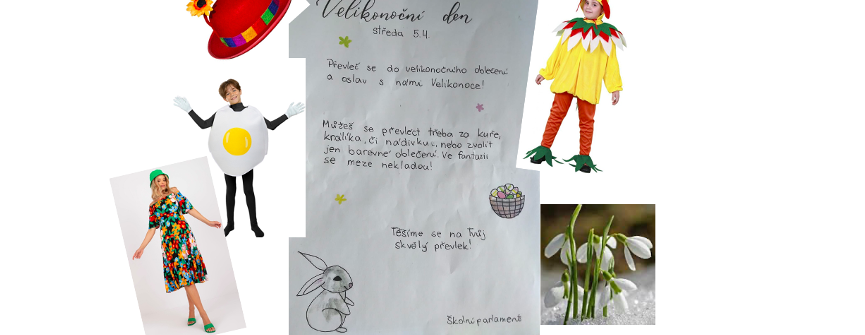 Velikonoční den
středa 5.4.
Převleč se do velikonočního oblečení
a oslav s námi Velikonoce!
Můžeš se převlect třeba za kuře,
králíka, či nádivku, nebo zvolit
jen barevné oblečení. Ve fantazii
se meze nekladou!
Těšíme se na Tvůj
skvělý převlek!
Školní parlament